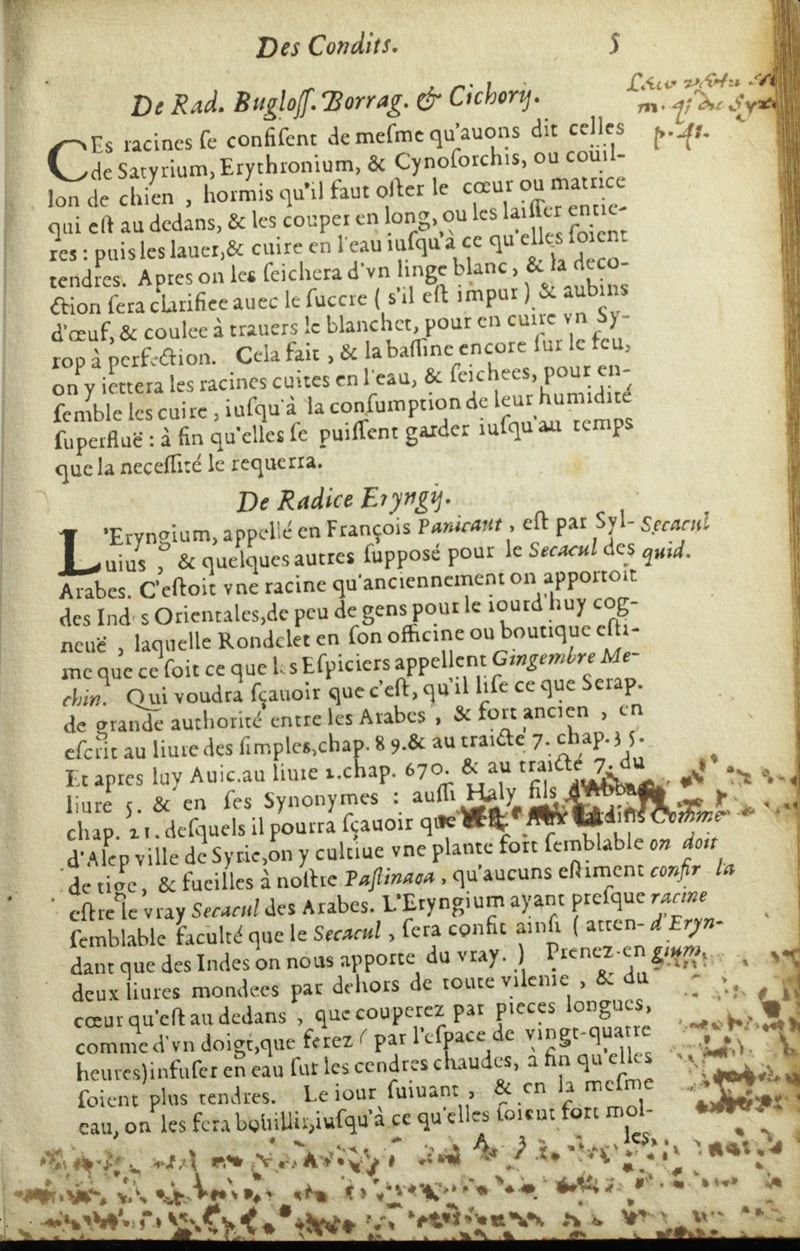 Des Condits. 5
De Rad. Bugloſſ. Borrag. & Cichorij.
CEs racines ſe confiſent de meſme qu'auons dit celles
de Satyrium, Erythronium, & Cynoſorchis, ou couil-
lon de chien , hormis qu'il faut oſter le cœur ou matrice
qui eſt au dedans, & les couper en long, ou les laiſſer entie-
res : puis les lauer,& cuire en l'eau iuſqu'à ce qu'elles ſoient
tendres. Apres on les ſeichera d'vn linge blanc, & la deco-
ction ſera clarifiee auec le ſuccre ( s'il eſt impur ) & aubins
d'œuf, & coulee à trauers le blanchet, pour en cuire vn Sy-
rop à perfection. Cela fait , & la baſſine encore ſur le feu,
on y iettera les racines cuites en l'eau, & ſeichees, pour en-
ſemble les cuire , iuſqu'à la conſumption de leur humidité
ſuperfluë : à fin qu'elles ſe puiſſent garder iuſqu'au temps
que la neceſſité le requerra.
De Radice Eryngij.
L'Eryngium, appellé en François Panicaut, eſt par Syl-
uius , & quelques autres ſuppoſé pour le Secacul des
Secacul
quid.
Arabes. C'eſtoit vne racine qu'anciennement on apportoit
des Ind s Orientales,de peu de gens pour le iourd'huy cog-
neuë , laquelle Rondelet en ſon officine ou boutique eſti-
me que ce ſoit ce que les Eſpiciers appellent Gingembre Me-
chin. Qui voudra ſçauoir que c'eſt, qu'il liſe ce que Serap.
de grande authorité entre les Arabes , & fort ancien , en
eſcrit au liure des ſimples,chap. 89.& au traicté 7. chap.35.
Et apres luy Auic.au liure 2.chap. 670. & au traicté 7. du
liure 5. & en ſes Synonymes : auſſi Haly fils d'Abbas
chap. 21. deſquels il pourra ſçauoir que
d'Alep ville de Syrie,on y cultiue vne plante fort ſemblable
de tige, & fueilles à noſtre Paſtinaca , qu'aucuns eſtiment
eſtre le vray Secacul des Arabes. L'Eryngium ayant preſque
ſemblable faculté que le Secacul , ſera confit ainſi ( atten-
dant que des Indes on nous apporte du vray. ) Prenez-en
Comme
on doit
confir la
racine
d'Eryn-
gium.
deux liures mondees par dehors de toute vilenie , & du
cœur qu'eſt au dedans , que couperez par pieces longues,
comme d'vn doigt,que ferez ( par l'eſpace de vingt-quatre
heures)infuſer en eau ſur les cendres chaudes, à fin qu'elles
ſoient plus tendres. Le iour ſuiuant , & en la meſme
eau, on les fera boüillir,iuſqu'à ce qu'elles ſoient fort mol-
A 3 les,